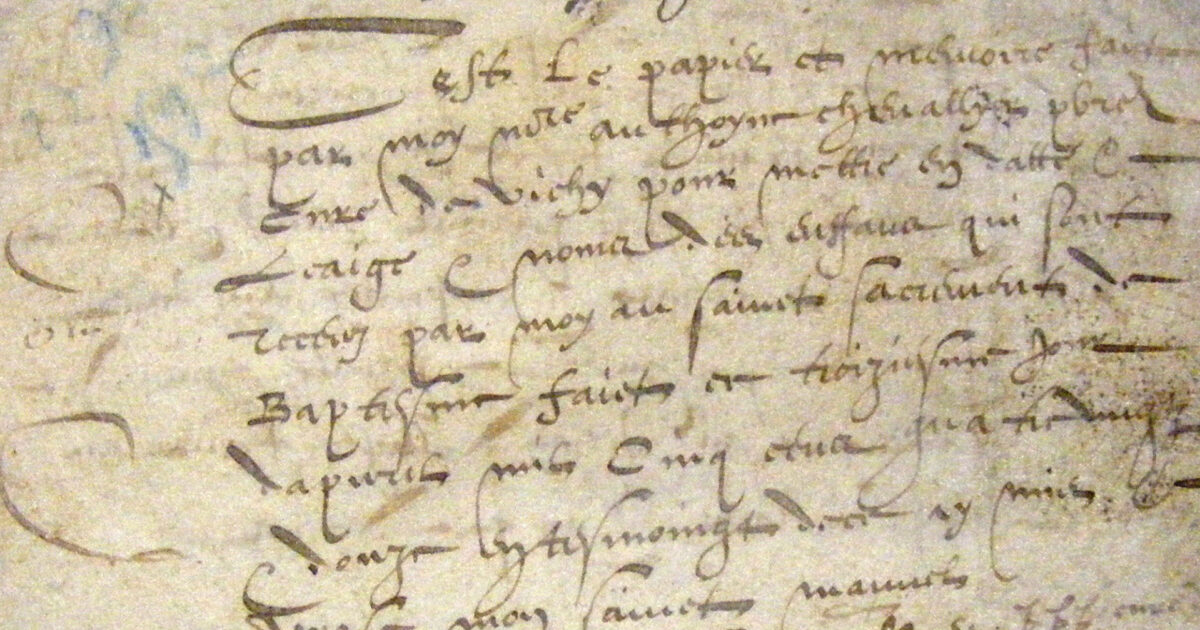 Cest Le papier et memoire faict
par moy mtre anthoyne chevallyer pbre
Cure de vichy pour mettre en datte &
Leaige & nomes des enffans qui sont
recehuz par moy au sainct sacrement de
Baptesme faict ce troiziesme jour
dapvril mil Cinq cens quatre vingt
douze en tesmoingt de ce ay mis
mon sainct manuel